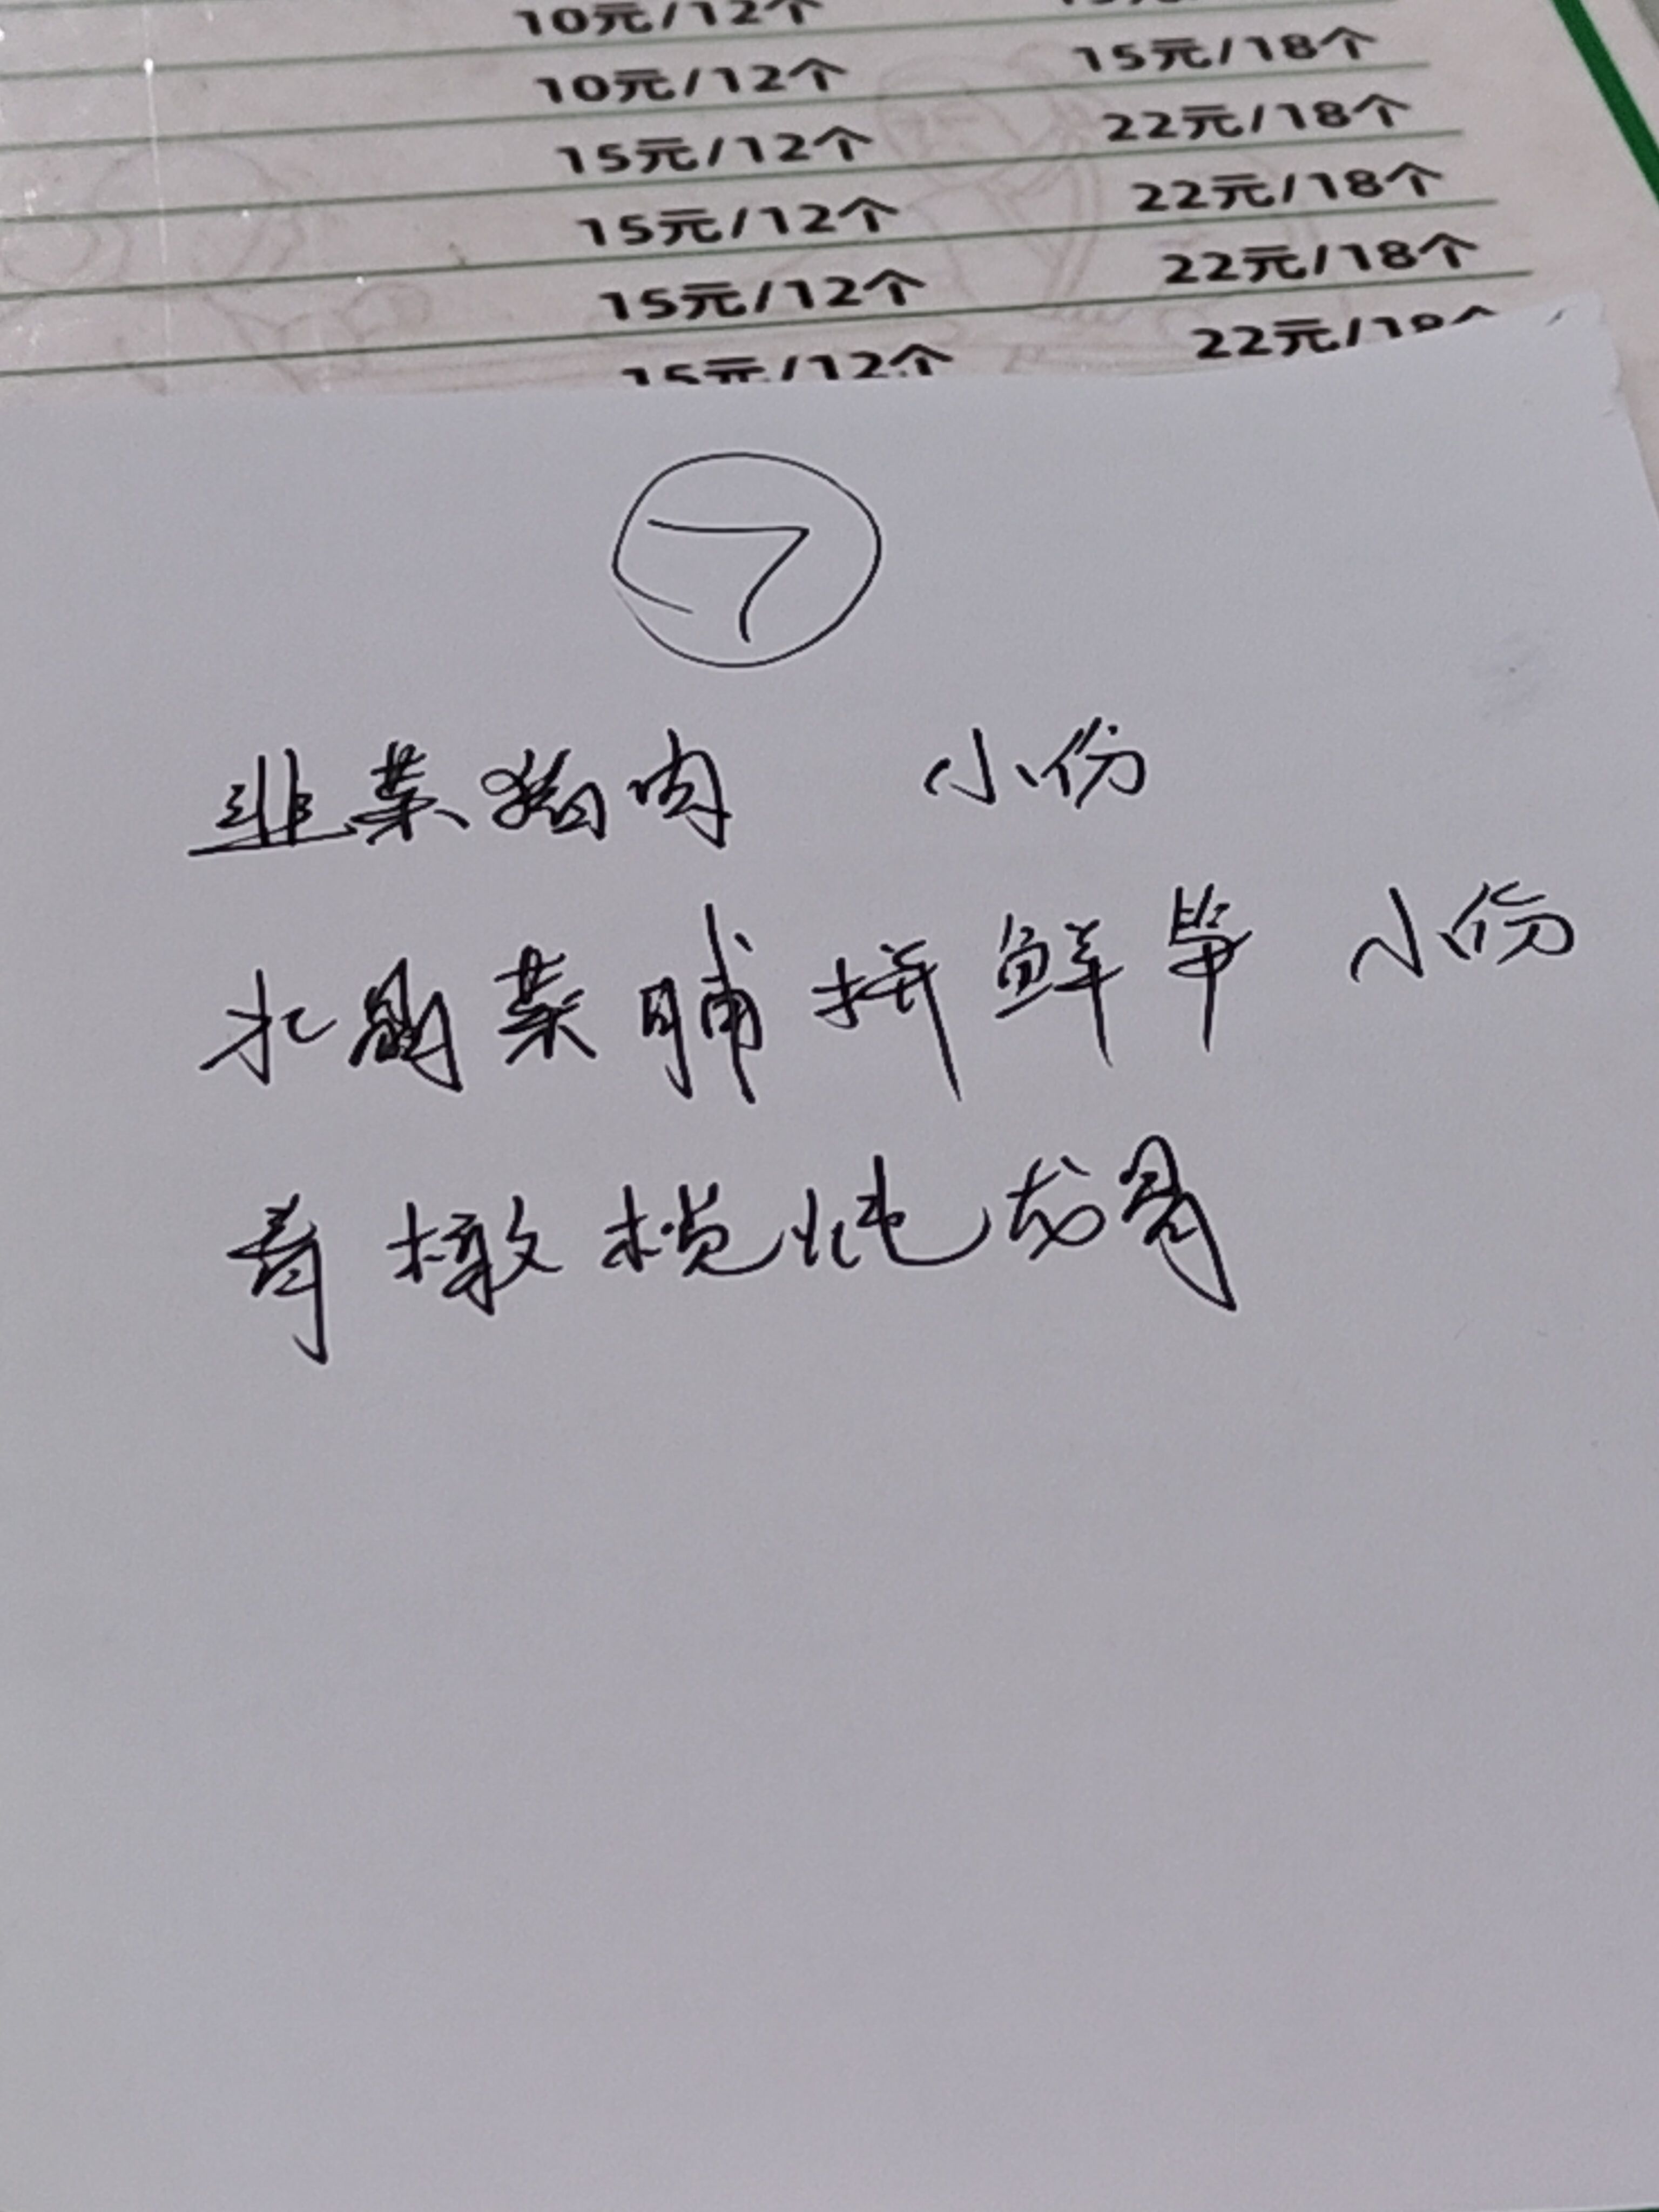 10元/12个
10元/12个 15元/18个
15元/12个 22元/18个
15元/12个 22元/18个
15元/12个 22元/18个
15元/12个 22元/18个
7
韭菜猪肉 小份
菜脯拼鲜笋 小份
青橄榄炖龙骨